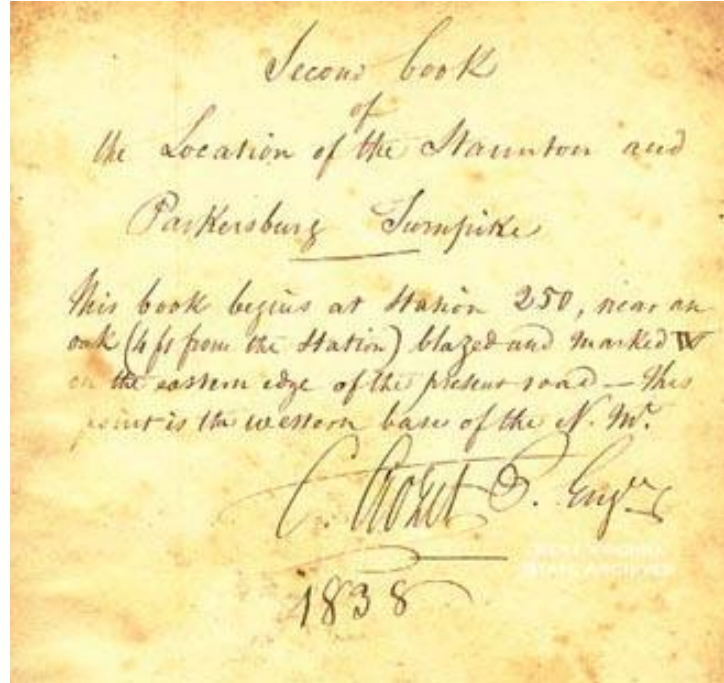 Second book
of
the Location of the Staunton and
Parkersburg Turnpike
This book begins at Station 250, near an
oak (4 ft from the Station) blazed and marked IV
on the eastern edge of the present road – This
point is the western base of the N. Mn.
C. Crozet P. Engr
1838
WEST VIRGINIA
STATE ARCHIVES